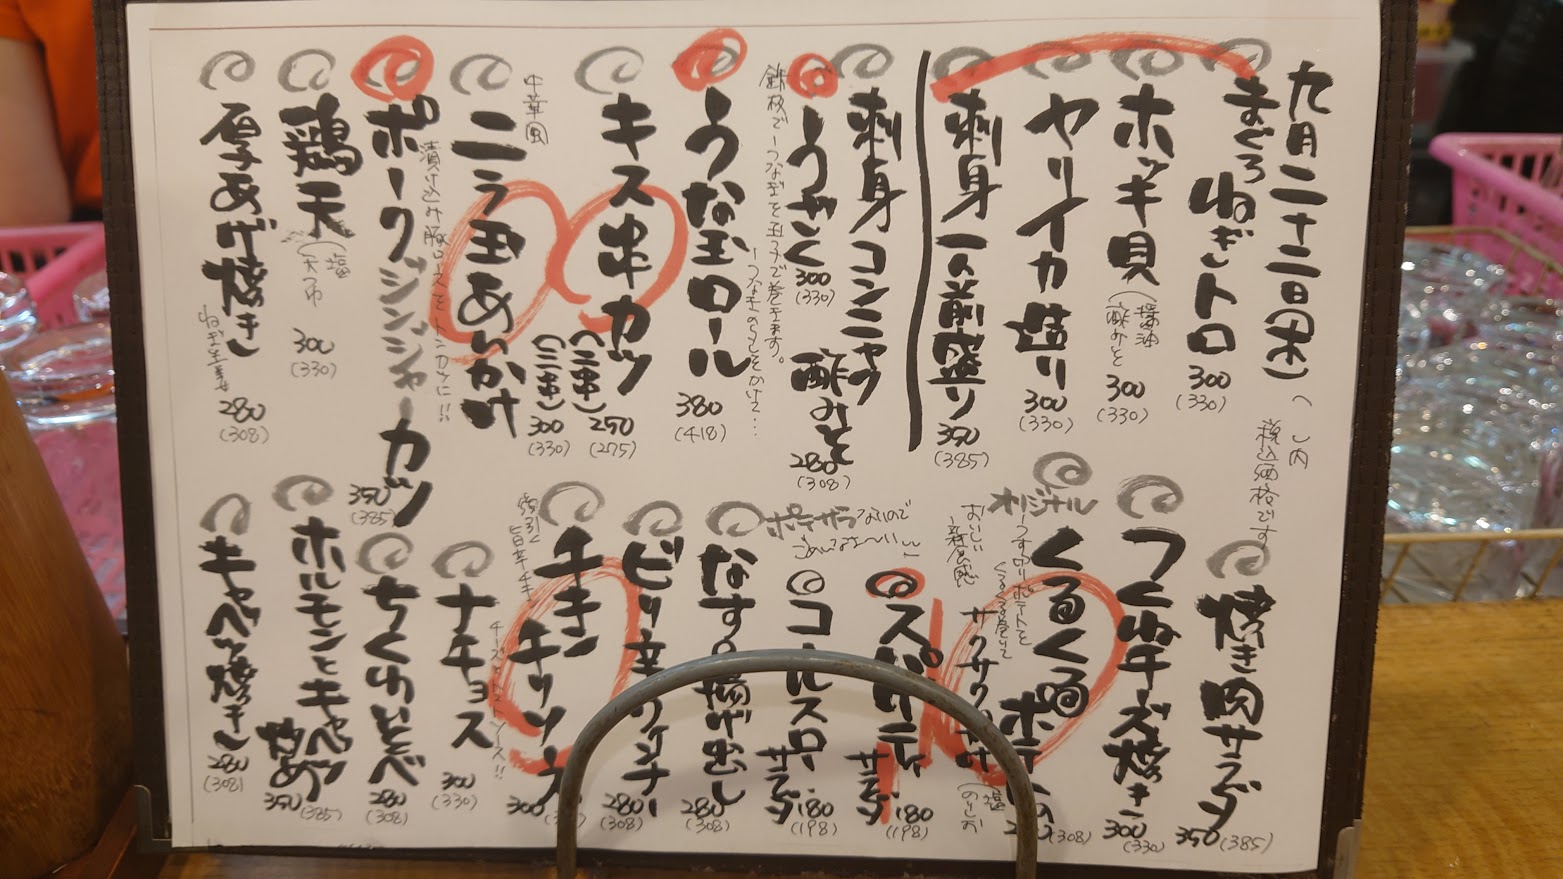 九月二十二日(木)
( )内
税込価格です
まぐろ
ねぎトロ
300
(330)
ホッキ貝
(醤油
酢みそ
300
(330)
ヤリイカ造り
300
(330)
刺身一人前盛り
350
(385)
刺身コンニャク
酢みそ
280
(308)
うざく
300
(330)
鉄板でうなぎを玉子で巻きます。
うな玉ロール
380
(418)
キス串カツ
(二串)
250
(275)
(三串)
300
(330)
中華風
ニラ玉あんかけ
漬け込み豚ロースをトンカツに!!
ポークジンジャーカツ
350
(385)
鶏天
(塩
天つゆ
300
(330)
厚あげ焼き
280
(308)
焼き肉サラダ
350
(385)
つくねチーズ焼き
300
(330)
オリジナル
くるくるポテト
(308)
おいしい
新食感
サクサク
(塩
のりしお
スパゲティ
サラダ
180
(198)
ポテサラないので
コールスロー
サラダ
180
(198)
なすの揚げ出し
280
(308)
ピリ辛ウインナー
280
(308)
チキンチリソース
300
ナチョス
300
(330)
ちくわいそべ
280
(308)
ホルモンとキャベツ
炒め
350
(385)
キャベツ焼き
280
(308)